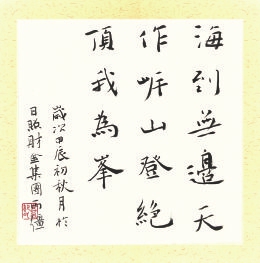 海到無邊天
作岸山登絕
頂我為峯
歲次甲辰初秋月於
日照財金集團